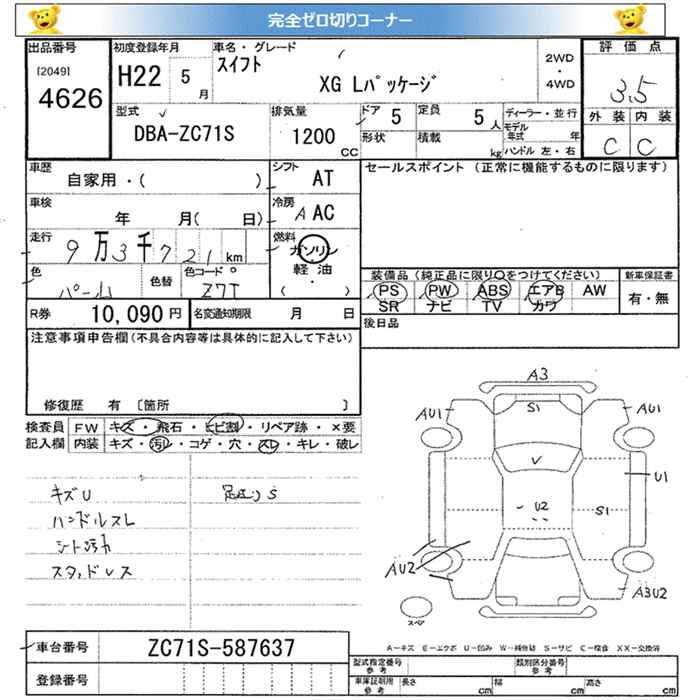 完全ゼロ切りコーナー
出品番号
[2049]
4626
初度登録年月
H22 5 月
車名・グレード
スイフト
XG Lパッケージ
2WD
・
4WD
評価点
3.5
外装 内装
C C
型式
DBA-ZC71S
排気量
1200 cc
ドア 5
定員 5 人
形状
積載 kg
ディーラー・並行
モデル年式 年
ハンドル 左・右
車歴
自家用・( )
シフト AT
車検
年 月( 日)
冷房 A AC
走行
9万3千721km
燃料
ガソリン
軽油
( ・ )
色
パール
色替
色コード
Z7T
R券 10,090 円
名変通知期限 月 日
セールスポイント (正常に機能するものに限ります)
装備品 (純正品に限り○をつけてください)
新車保証書
PS PW ABS エアB AW
SR ナビ TV カワ
有・無
後日品
注意事項申告欄(不具合内容等は具体的に記入して下さい)
修復歴 有 [箇所 ]
検査員
記入欄
FW キズ・飛石・ヒビ割・リペア跡・×要
内装 キズ・汚レ・コゲ・穴・スレ・キレ・破レ
キズU
ハンドルスレ
シート汚れ
スタッドレス
足廻りS
A3
AU1
S1
AU1
V
U1
U2
S1
AU2
A3U2
スペア
A―キズ E―エクボ U―凹み W―補修跡 S―サビ C―腐食 XX―交換済
車台番号 ZC71S-587637
登録番号
型式指定番号
参考
類別区分番号
参考
車庫証明用
参考
長さ cm
幅 cm
高さ cm